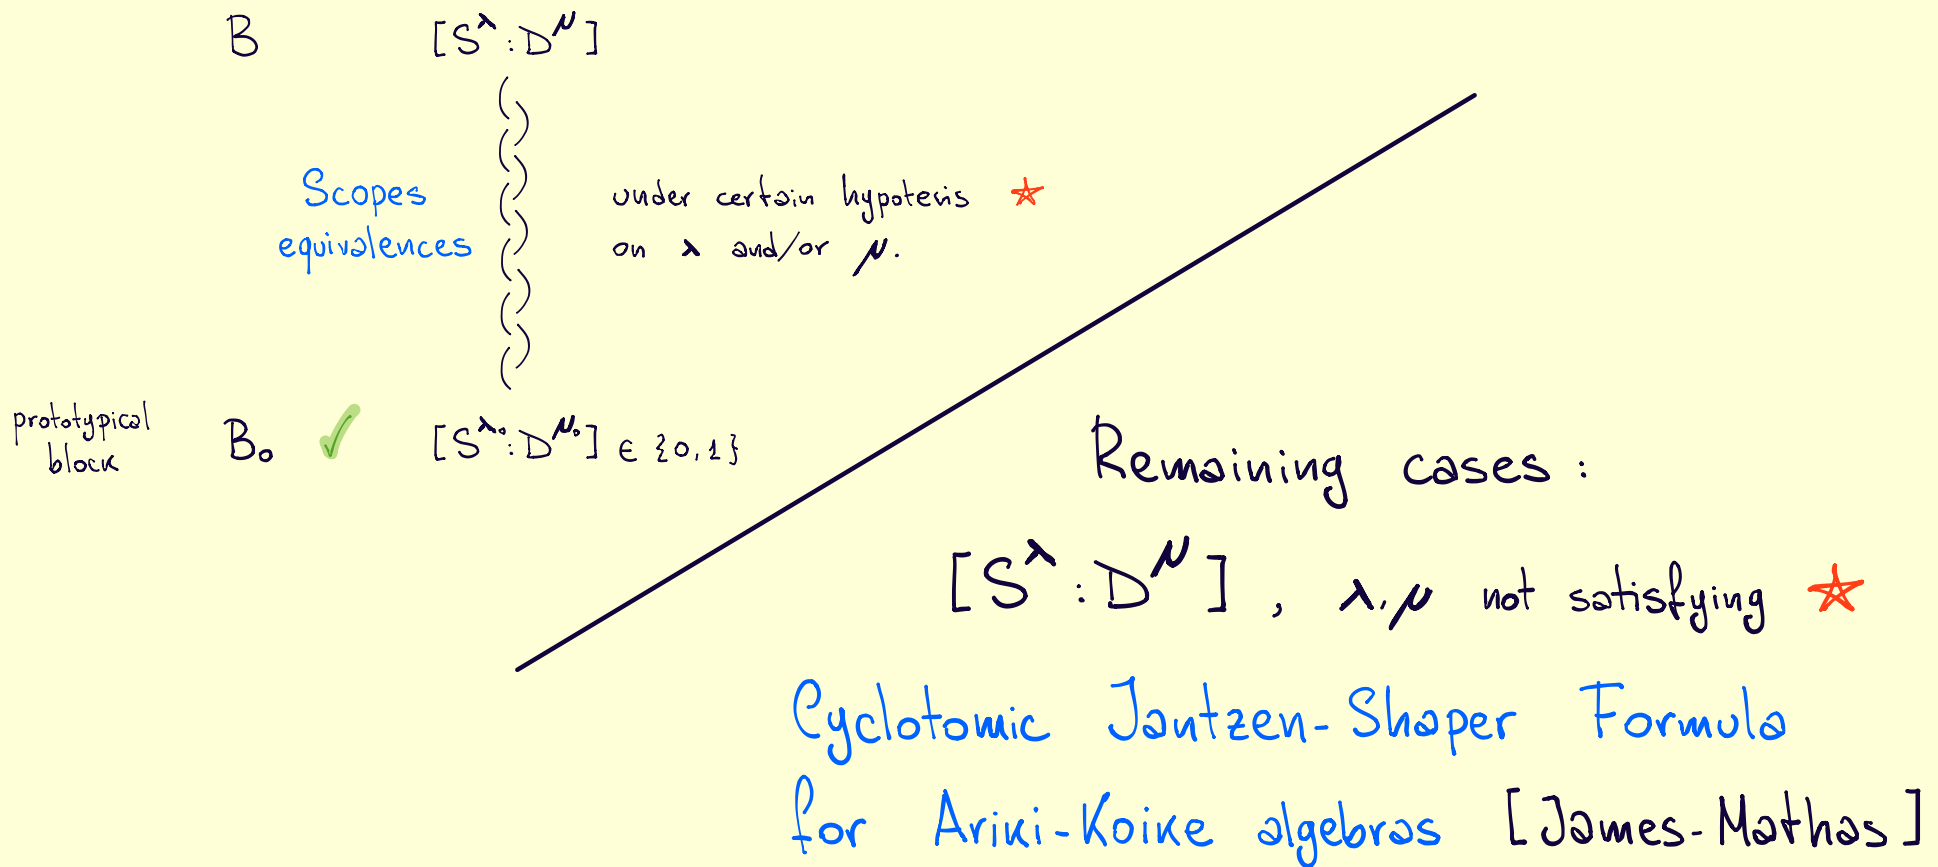 B [S^λ : D^μ]
Scopes under certain hypotesis ☆
equivalences on λ and/or μ.
prototypical
block B₀ ✓ [S^λ₀ : D^μ₀] ∈ {0,1}
Remaining cases :
[S^λ : D^μ] , λ,μ not satisfying ☆
Cyclotomic Jantzen-Shaper Formula
for Ariki-Koike algebras [James-Mathas]